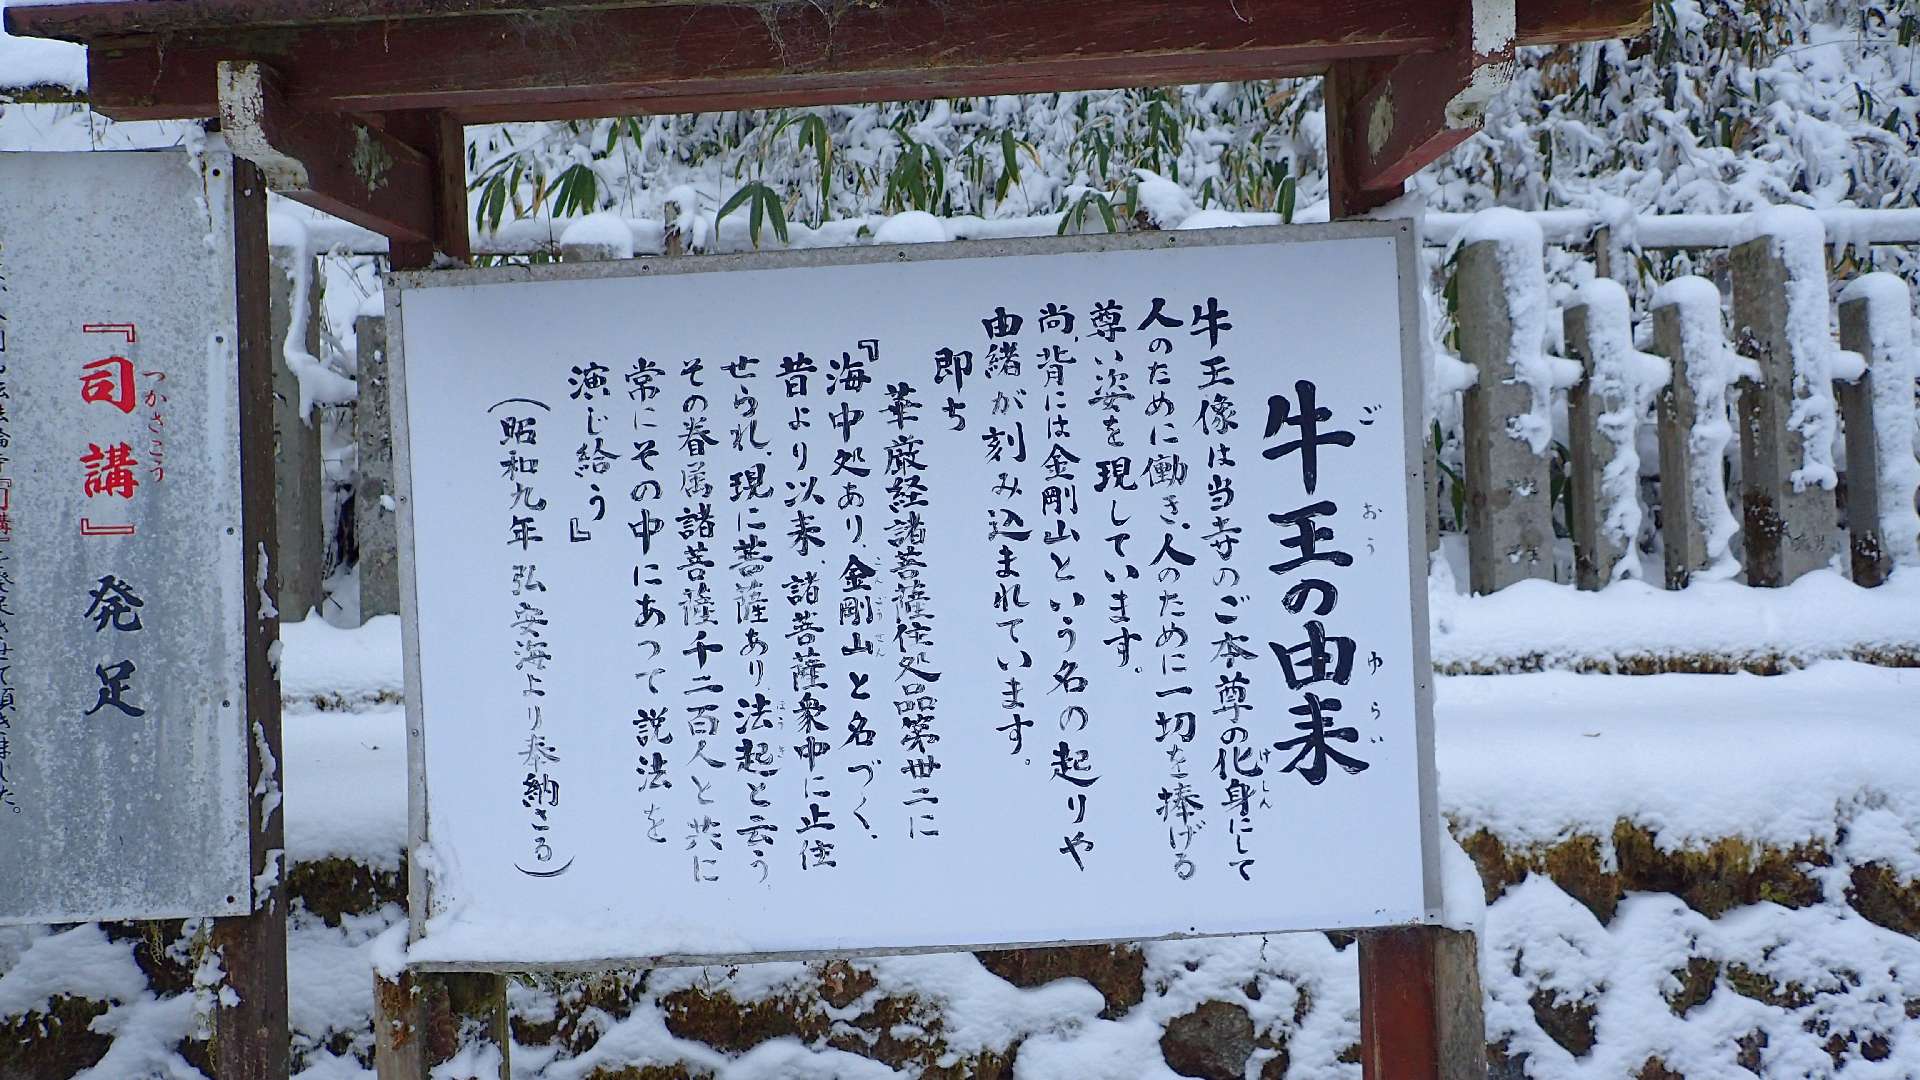 牛王の由来
ご おう ゆらい
牛王像は当寺のご本尊の化身にして
けしん
人のために働き、人のために一切を捧げる
尊い姿を現しています。
尚、背には金剛山という名の起りや
由緒が刻み込まれています。
即ち
華厳経諸菩薩住処品第卅二に
『海中処あり、金剛山と名づく、
こんごうせん
昔より以来、諸菩薩衆中に止住
せられ、現に菩薩あり、法起と云う、
ほうき
その眷属諸菩薩千二百人と共に
常にその中にあつて説法を
演じ給う』
(昭和九年 弘安海より奉納さる)
『司講』発足
つかさこう